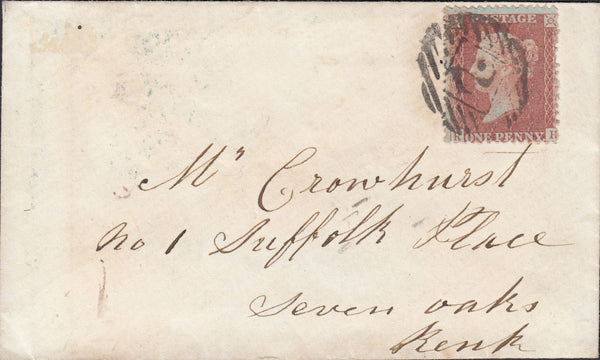 POSTAGE
ONE PENNY
Mr Crowhurst
no 1 Suffolk Place
Seven oaks
Kent